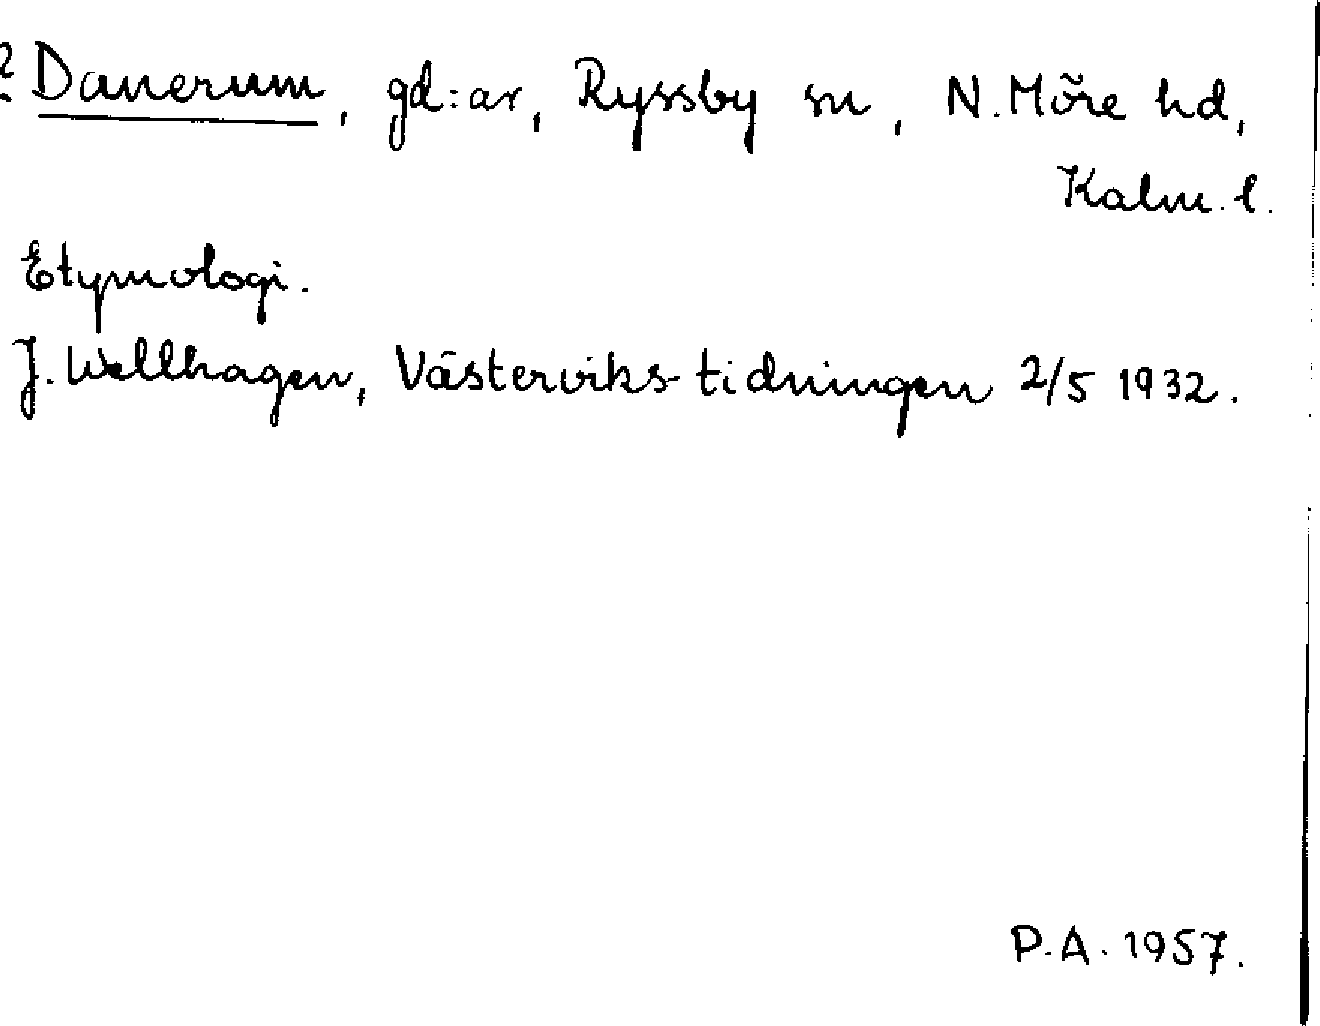 Danerum, gd:ar, Ryssby sn, N. Möre hd,
Kalm. l.
Etymologi.
J. Wellhagen, Västerviks-tidningen 2/5 1932.
P.A. 1957.